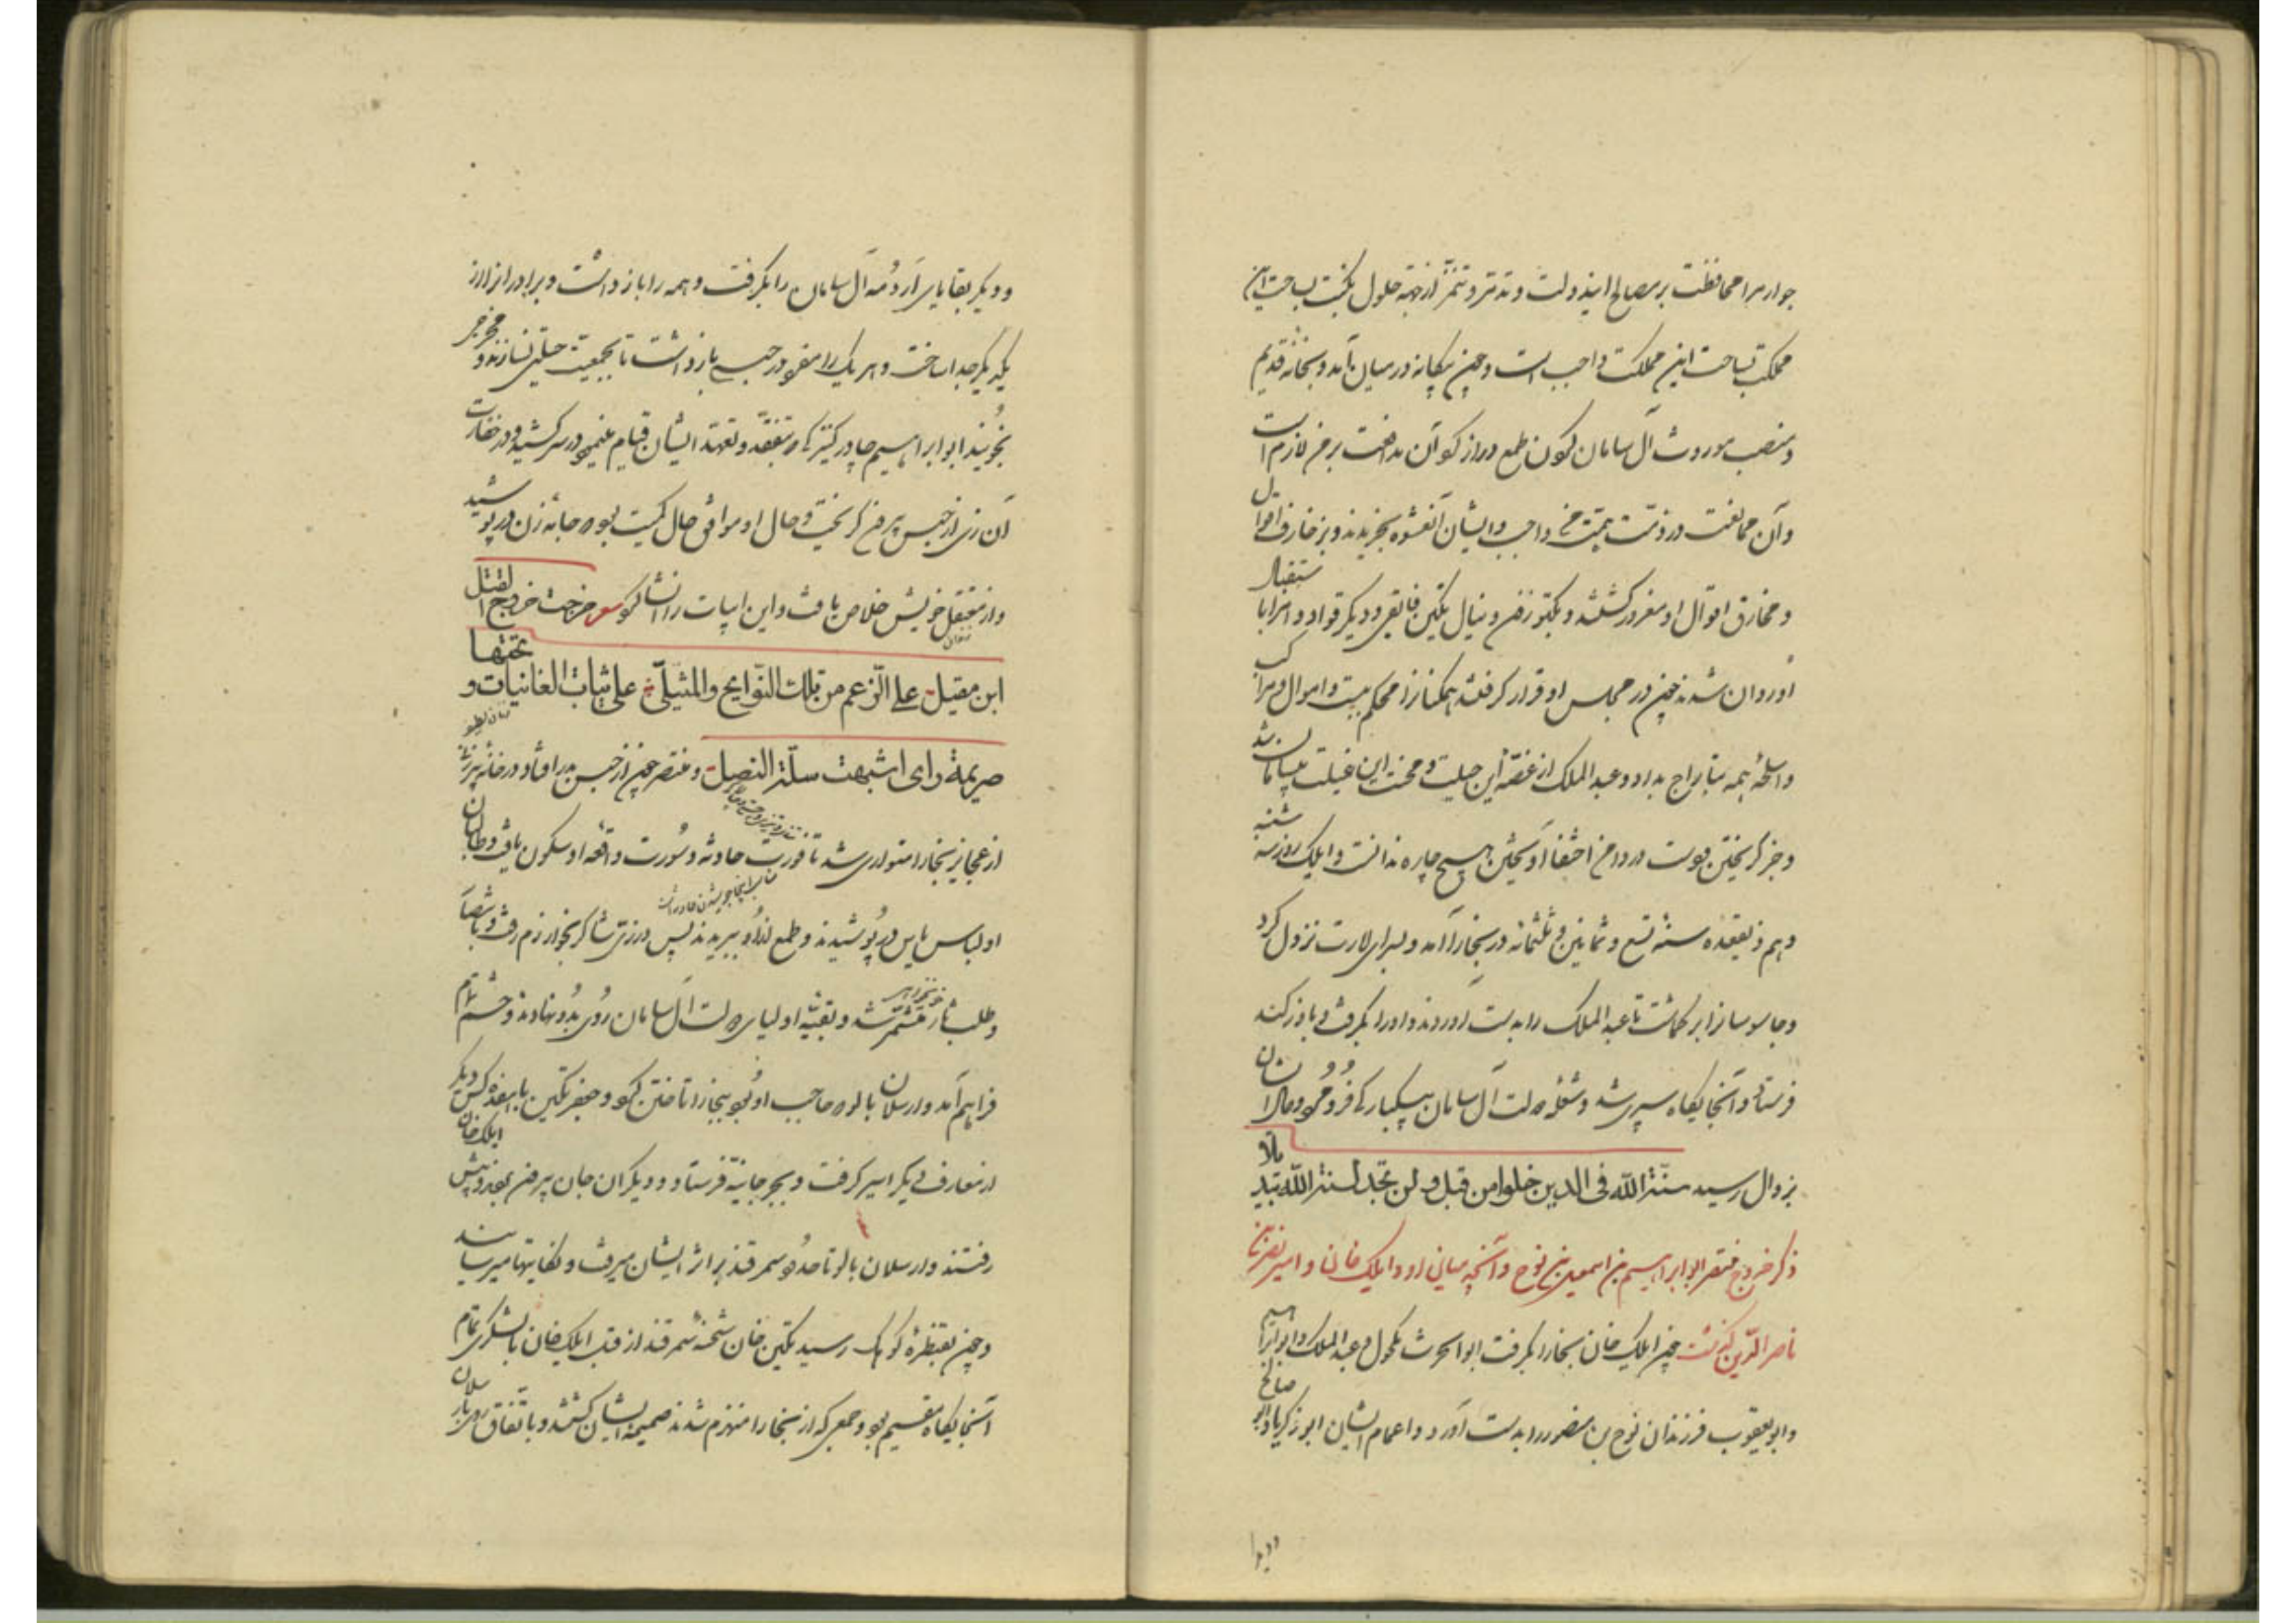 جوار مرا محافظت بر مصالح ایندولت و تدثر و تنمر از جهه حلول نکبت بساحت این
مملکت بساحت این مملکت واجب است و چون بیگانه در میان آمد و بخانه قدیم
و منصب موروث آل سامان کون طمع دراز کو آن مدافعت بر من لازم است
وآن ممانعت در ذمت همت من واجب و ایشان آنعشوه بخریدند و بزخارف اموال
و مخارق اقوال او مغرور گشتند و بکتوزون و ینال تکین فایقی و دیگر قواد و امرا باستقبال
او روان شدند چون در مجلس او قرار گرفتند همگنانرا محکم ببست و اموال و مراکب
و اسلحه همه بتاراج بداد و عبدالملک از غصه این حیلت و محنت این غیلت پشیمان شد
و جز گریختن و دست در دامن اختفا آویختن هیچ چاره ندانست و ایلک روز سه شنبه
دهم ذیقعده سنه تسع و ثمانین و ثلثمائه در بخارا آمد و بسرای امارت نزول کرد
و جاسوسانرا بر گماشت تا عبدالملک را بدست آوردند و او را بگرفت و باوزکند
فرستاد و آنجایگاه سپری شد و شعله دولت آل سامان بیکبارگی فرو مرد و مال ایشان
بزوال رسید سنة الله فی الدین خلوا من قبل و لن تجد لسنة الله تبدیلا
ذکر خروج منتصر ابو ابراهیم بن اسمعیل بن نوح و آنچه میان او و ایلک خان و امیر نصر بن
ناصر الدین گذشت چون ایلک خان بخارا بگرفت ابوالحرث مکحول و عبدالملک و ابو ابراهیم
و ابو یعقوب فرزندان نوح بن منصور را بدست آورد و اعمام ایشان ابو زکریا و ابو صالح
و دیگر بقایای ارومه آل سامان را بگرفت و همه را باز داشت و برادرانرا از
یکدیگر جدا ساخت و هر یک را مفرد در حبسی باز داشت تا بجمعیت حیلتی نسازند و مخرجی
نجویند ابو ابراهیم چادر کنیزکی که بتفقد و تعهد ایشان قیام مینمود در سر کشید و در خفارت
آن زی از حبس بیرون گریخت و حال او موافق حال کمیت بود که جامه زن در پوشید
و از معتقل خویش خلاص یافت و این ابیات را انشا کرد شعر خرجت خروج القدح
ابن مقبل علی الرغم من تلک النوابح والمشلی علی ثیاب الغانیات و تحتها
صریمة رای اشبهت سلة النصل و منتصر چون از حبس بدر افتاد در خانه پیرزنی
از عجایز بخارا متواری شد تا فورت حادثه و سورت واقعه او سکون یافت و طالبان
او لباس یاس در پوشیدند و طمع ازو ببریدند پس در زی شاگر بخوارزم رفت و باستصاب
و طلب ثار متشمر شد و بقیه اولیای دولت آل سامان روی بدو نهادند و حشمی تمام
فراهم آمد و ارسلان بالو که حاجب او بود ببخارا تاختن کرد و جعفر تکین با هفده کس دیگر
از معارف دیگر اسیر گرفت و بجرجانیه فرستاد و دیگران جان بیرون بردند و پیش ایلک خان
رفتند و ارسلان بالو تا حدود سمرقند بر اثر ایشان میرفت و نکایتها میرسانید
و چون بقنطره کوهک رسید تکین خان شحنه سمرقند از قبل ایلک خان با لشکری تمام
آنجایگاه مقیم بود و جمعی که از بخارا منهزم شدند ضمیمه ایشان گشتند و باتفاق روی بارسلان